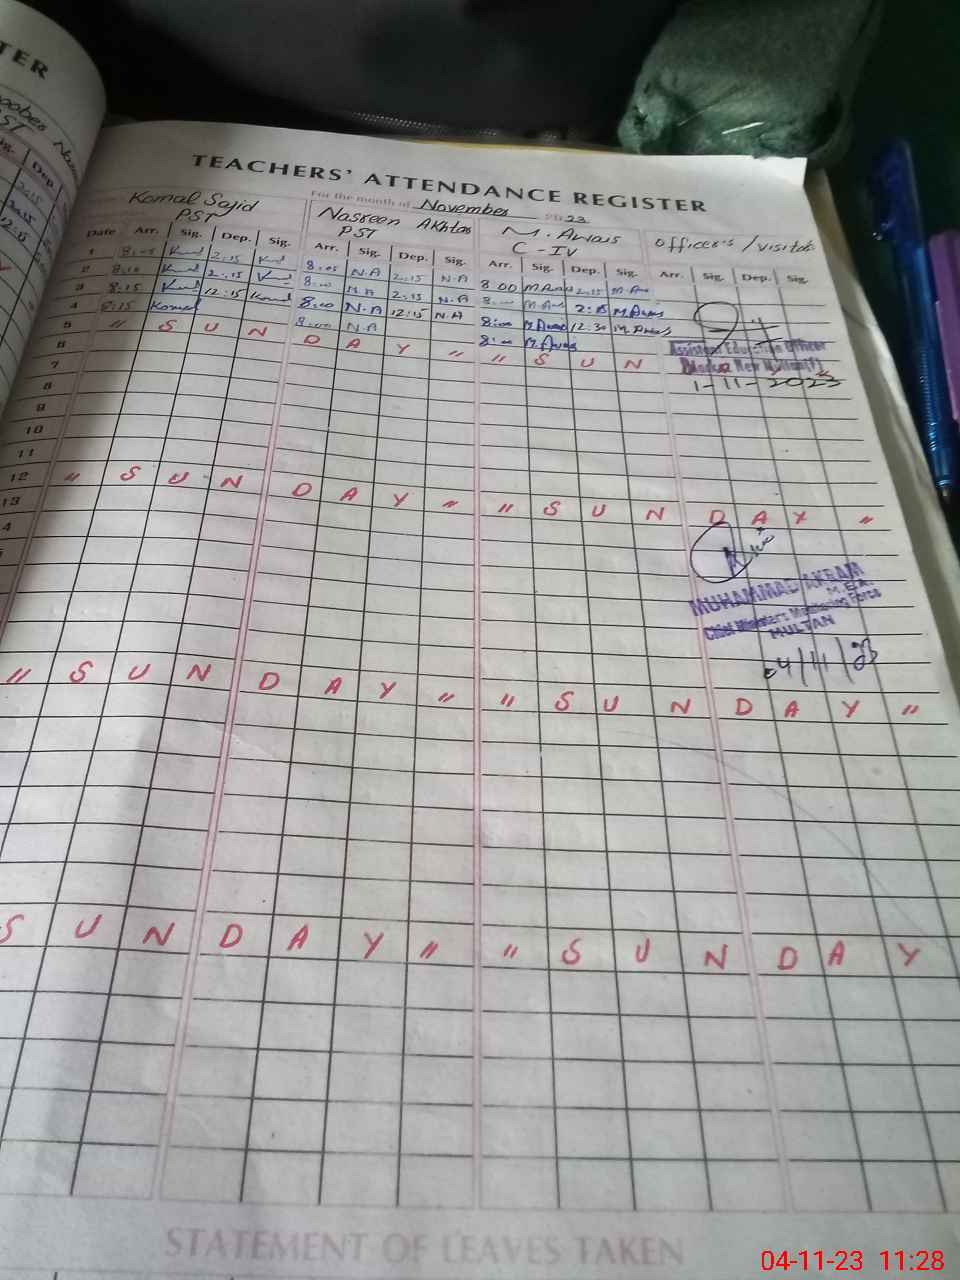 TER
Sig. Dep.
TEACHERS' ATTENDANCE REGISTER
For the month of November 2023
Komal Sajid Nasreen Akhtar M. Awais Officer's / visitor
PST PST C - IV
Date Arr. Sig. Dep. Sig. Arr. Sig. Dep. Sig. Arr. Sig. Dep. Sig. Arr. Sig. Dep. Sig.
1 8:05 2:15 8:05 N.A 2:15 N.A 8:00 M.Awais 2:15 M.Awais
2 8:10 2:15 8:00 N.A 2:15 N.A 8:00 M.Awais 2:15 M.Awais
3 8:15 12:15 Komal 8:00 N.A 12:15 N.A 8:00 M.Awais 12:30 M.Awais
4 8:15 Komal 8:00 N.A 8:00 M.Awais
5 " S U N D A Y " " S U N
Assistant Education Officer
1-11-2023
6
7
8
9
10
11
12 " S U N D A Y " " S U N D A Y "
13
4
MUHAMMAD AKRAM
M.E.A.
Chief Ministers Monitoring Force
MULTAN
04/11/23
" S U N D A Y " " S U N D A Y "
S U N D A Y " " S U N D A Y
STATEMENT OF LEAVES TAKEN
04-11-23 11:28